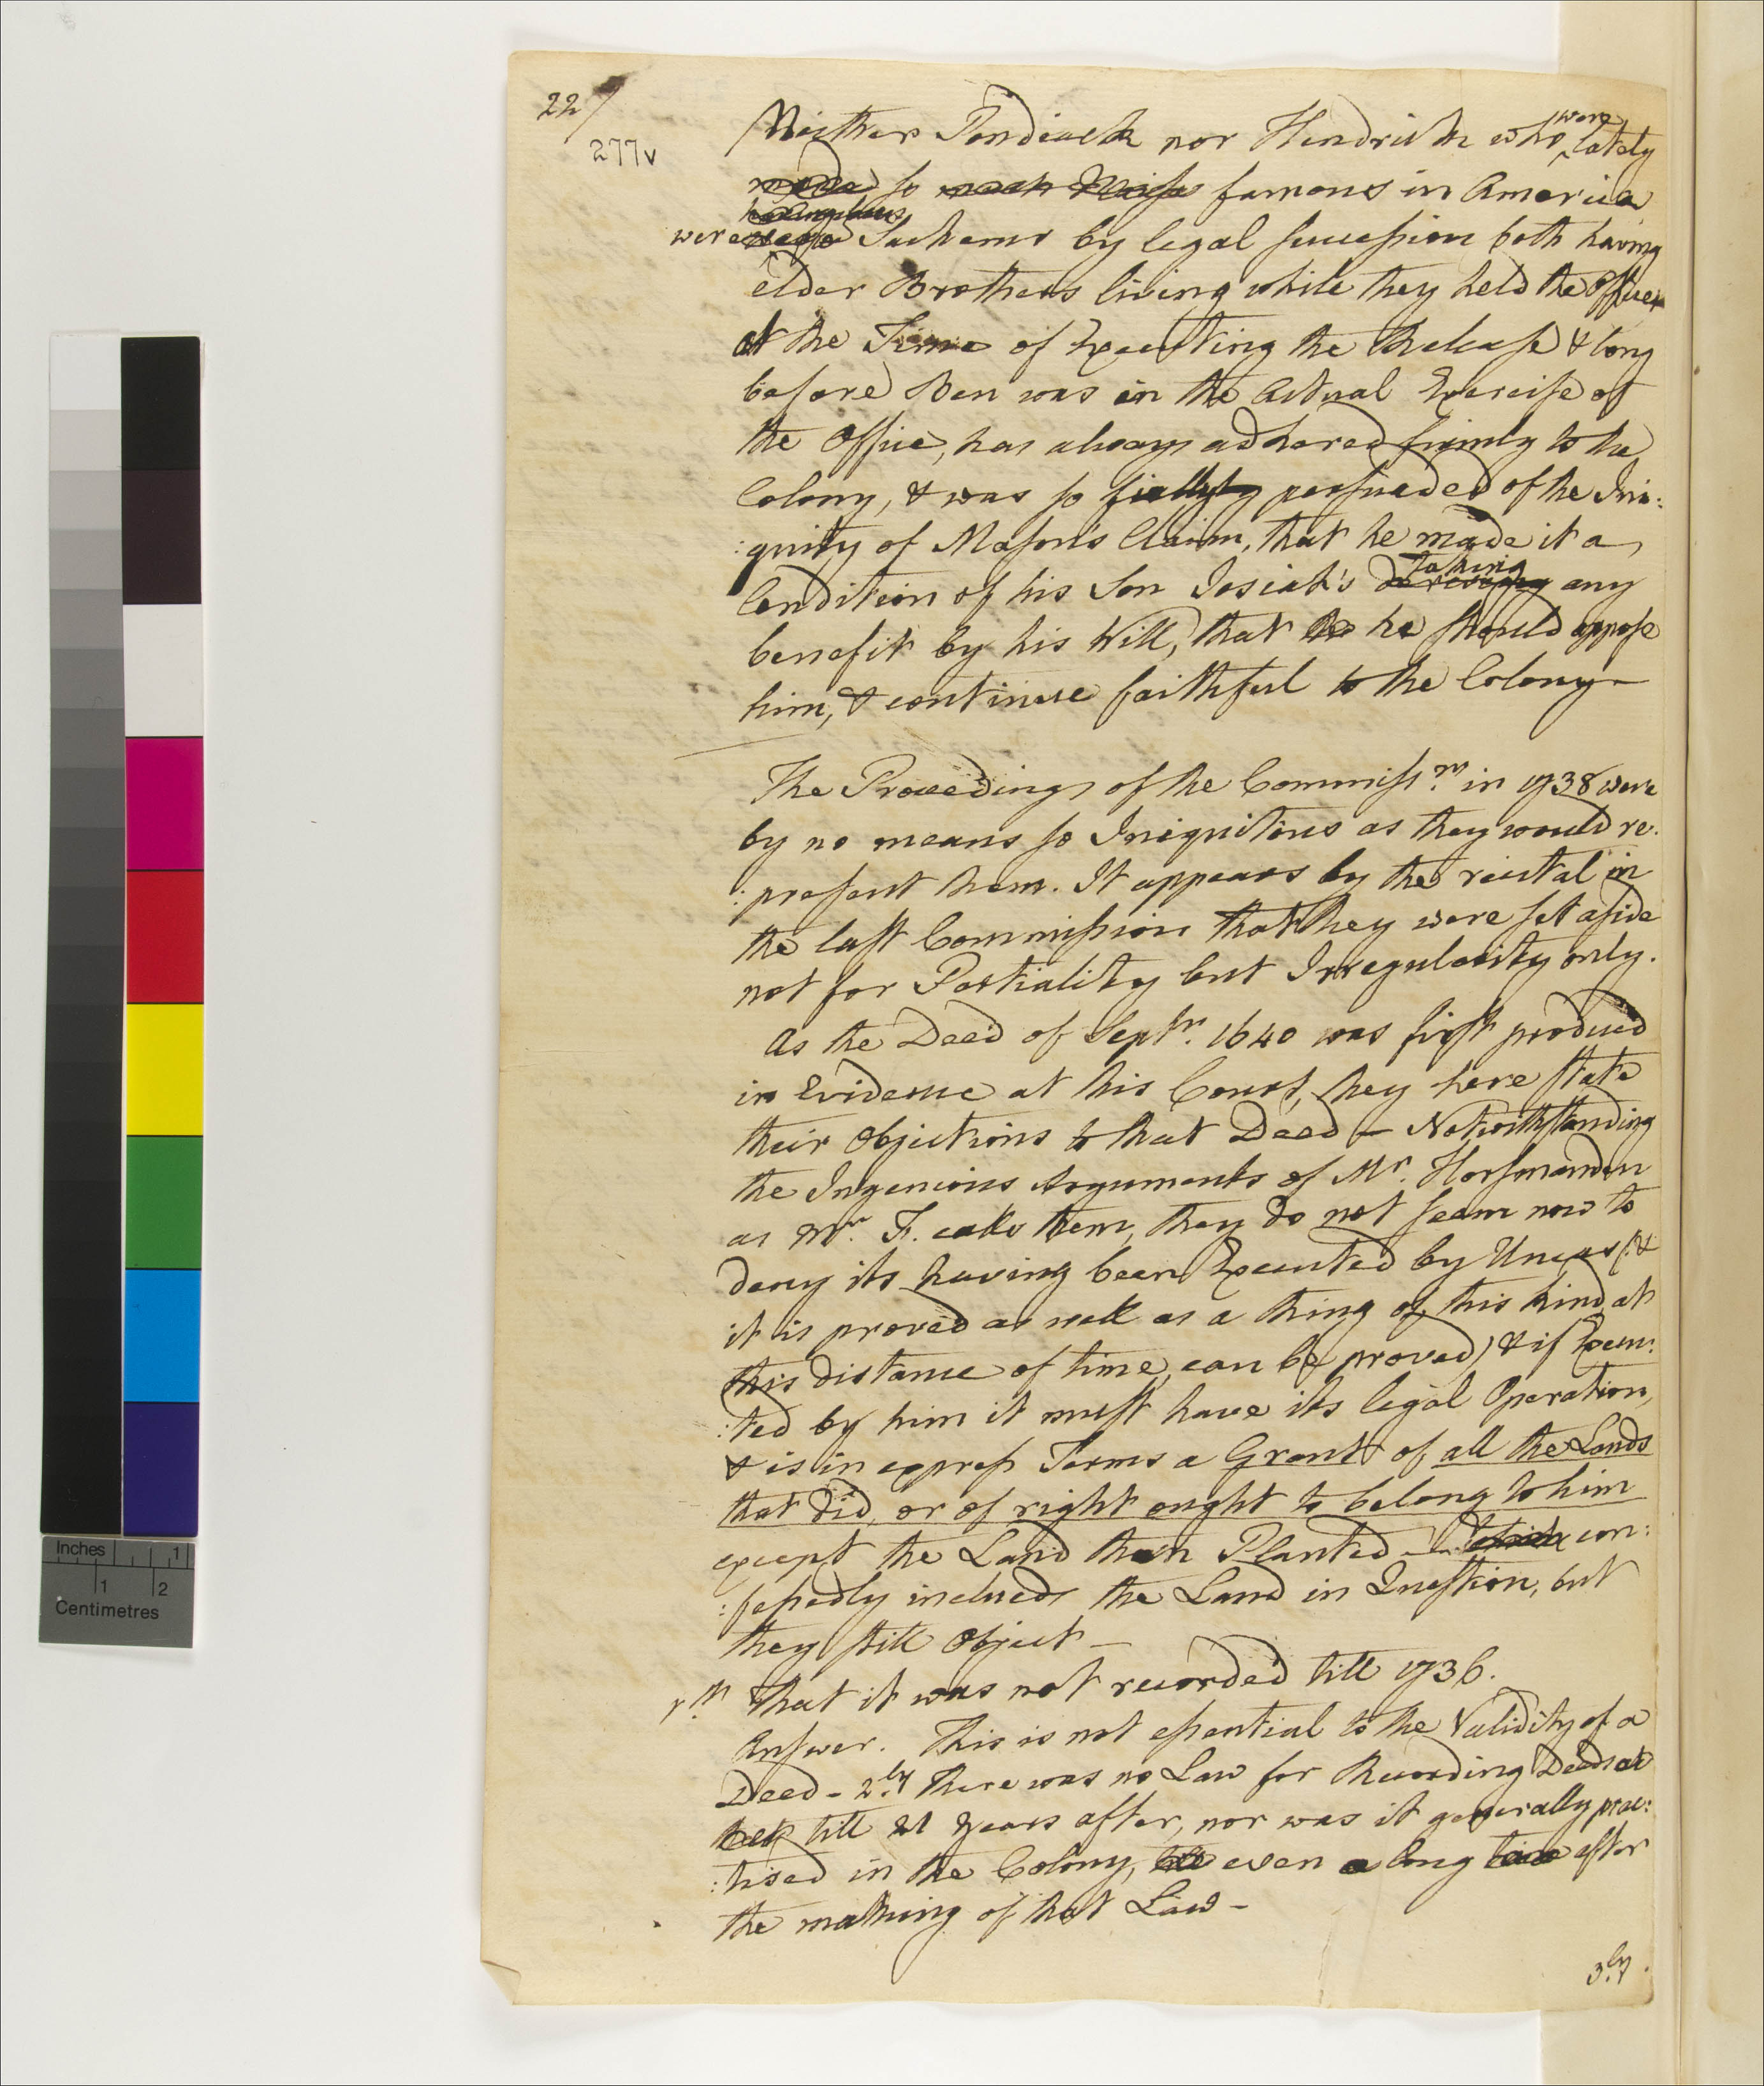 22/
277v
Neither Pondiack nor Hendrick who were lately
made so much Noise famous in America
having been
were were Sachems by legal succession both having
elder Brothers living while they held the Office
at the Time of Executing the Release & long
before Ben was in the Actual Exercise of
the Office, has always adhered firmly to the
Colony, & was so fully persuaded of the Ini:
:quity of Mason's Claim, that he made it a
Condition of his Son Josiah's taking any
benefit by his Will, that he should oppose
him, & continue faithful to the Colony –
The Proceedings of the Commissrs. in 1738 were
by no means so Iniquitous as they would re:
:present them. It appears by the recital in
the last Commission that they were set aside
not for Partiality but Irregularity only.
As the Deed of Septr. 1640 was first produced
in Evidence at this Court, they here state
their Objections to that Deed – Notwithstanding
the Ingenious Arguments of Mr. Horsmanden
as Mr. F. calls them, they do not seem now to
deny its having been Executed by Uncas (&
it is proved as well as a thing of this kind at
this distance of time can be proved) & if Execu:
:ted by him it must have its legal Operation,
& is in express Terms a Grant of all the Lands
that did, or of right ought to belong to him
except the Land then Planted – which con:
:fessedly includes the Land in Question, but
they still Object –
1st. That it was not recorded till 1736.
Answer. This is not essential to the Validity of a
Deed – 2ly. There was no Law for Recording Deeds at
till 21 Years after, nor was it generally prac:
:tised in the Colony, even long after
the making of that Law –
3ly.